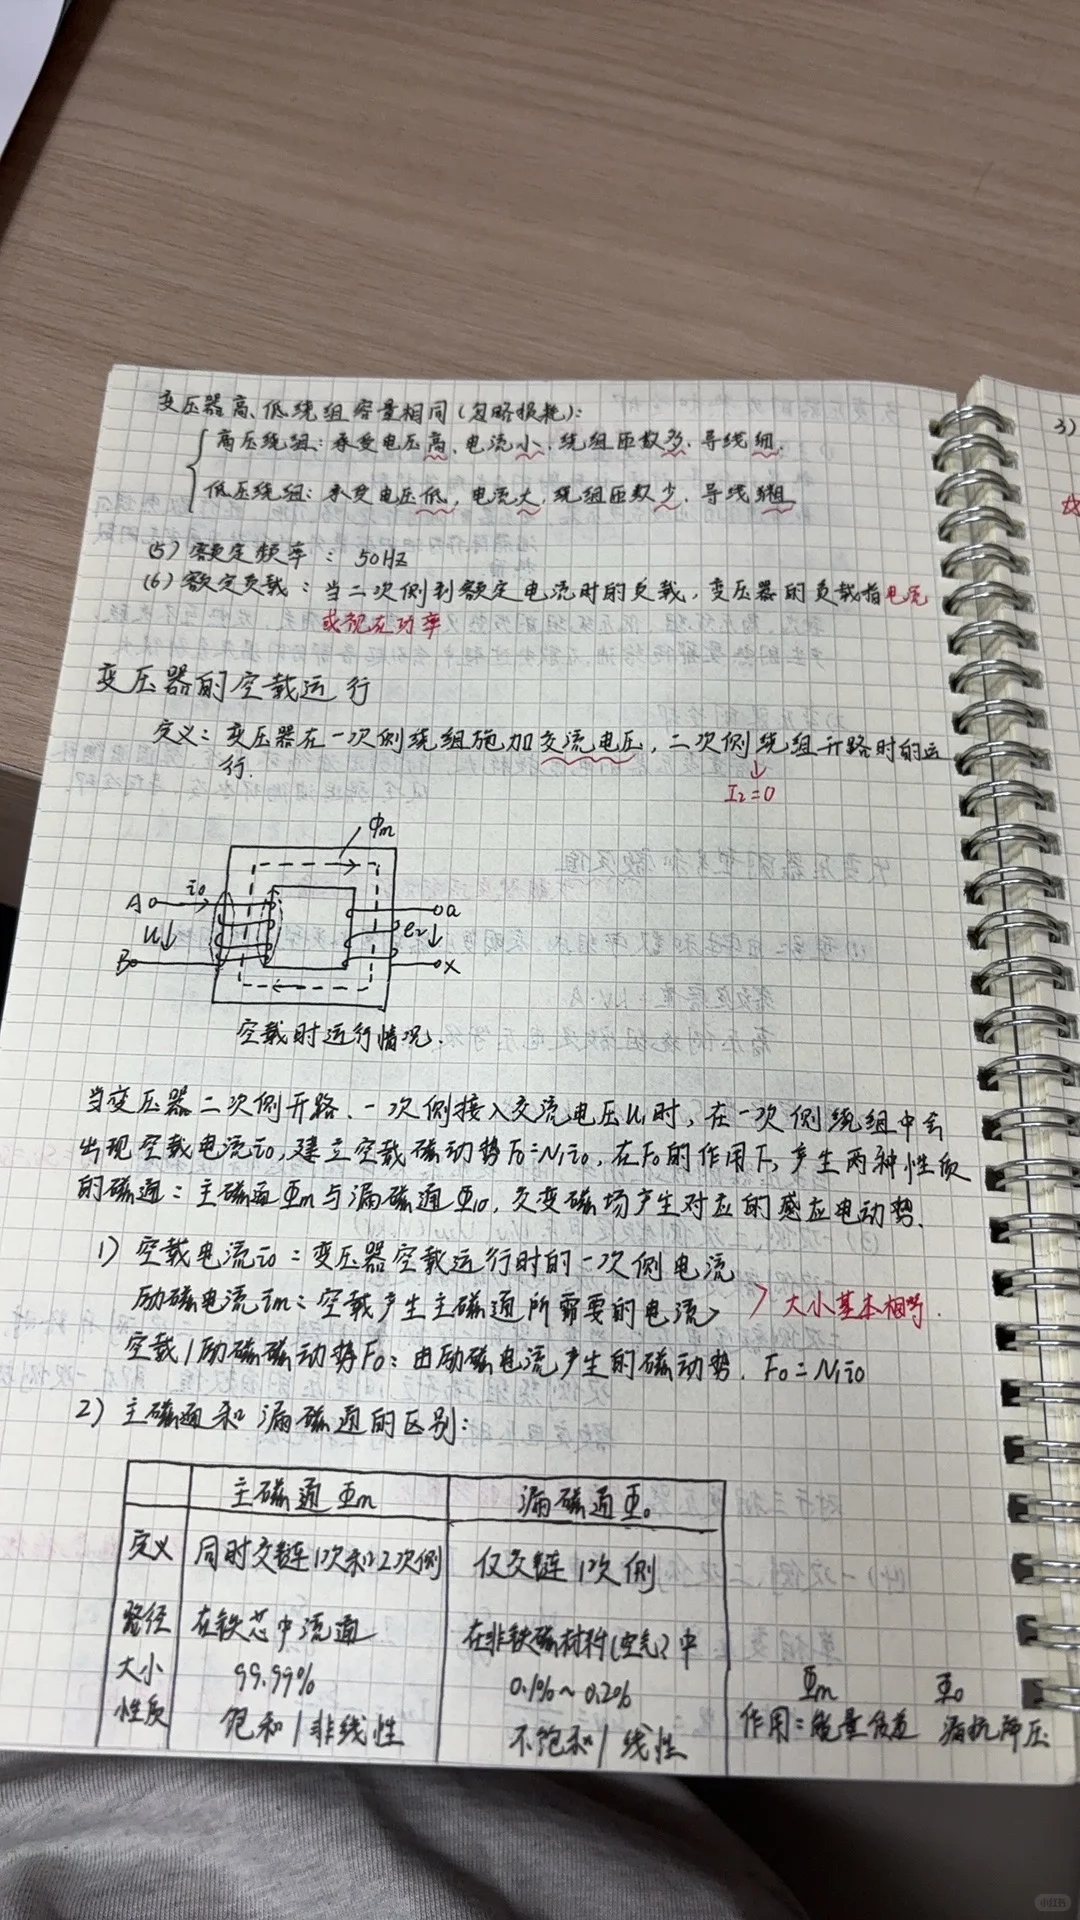 变压器高、低绕组容量相同(忽略损耗):
高压绕组: 承受电压高、电流小、绕组匝数多、导线细.
低压绕组: 承受电压低, 电流大, 绕组匝数少, 导线粗
(5) 额定频率: 50HZ
(6) 额定负载: 当二次侧到额定电流时的负载, 变压器的负载指电流
或视在功率
变压器的空载运行
定义: 变压器在一次侧绕组施加交流电压, 二次侧绕组开路时的运
行.
↓
I₂=0
Φm
A i₀ a
U↓ e₂↓
B X
空载时运行情况.
当变压器二次侧开路、一次侧接入交流电压U₁时, 在一次侧绕组中会
出现空载电流i₀, 建立空载磁动势F₀=N₁i₀, 在F₀的作用下, 产生两种性质
的磁通: 主磁通Φm与漏磁通Φ₁₀, 交变磁场产生对应的感应电动势.
1) 空载电流i₀: 变压器空载运行时的一次侧电流
励磁电流im: 空载产生主磁通所需要的电流 > 大小基本相等.
空载/励磁磁动势F₀: 由励磁电流产生的磁动势. F₀=N₁i₀
2) 主磁通和漏磁通的区别:
主磁通Φm 漏磁通Φ₀
定义 同时交链1次和2次侧 仅交链1次侧
路径 在铁芯中流通 在非铁磁材料(空气)中
大小 99.99% 0.1%~0.2%
性质 饱和/非线性 不饱和/线性
Φm Φ₀
作用: 能量 降压
3)